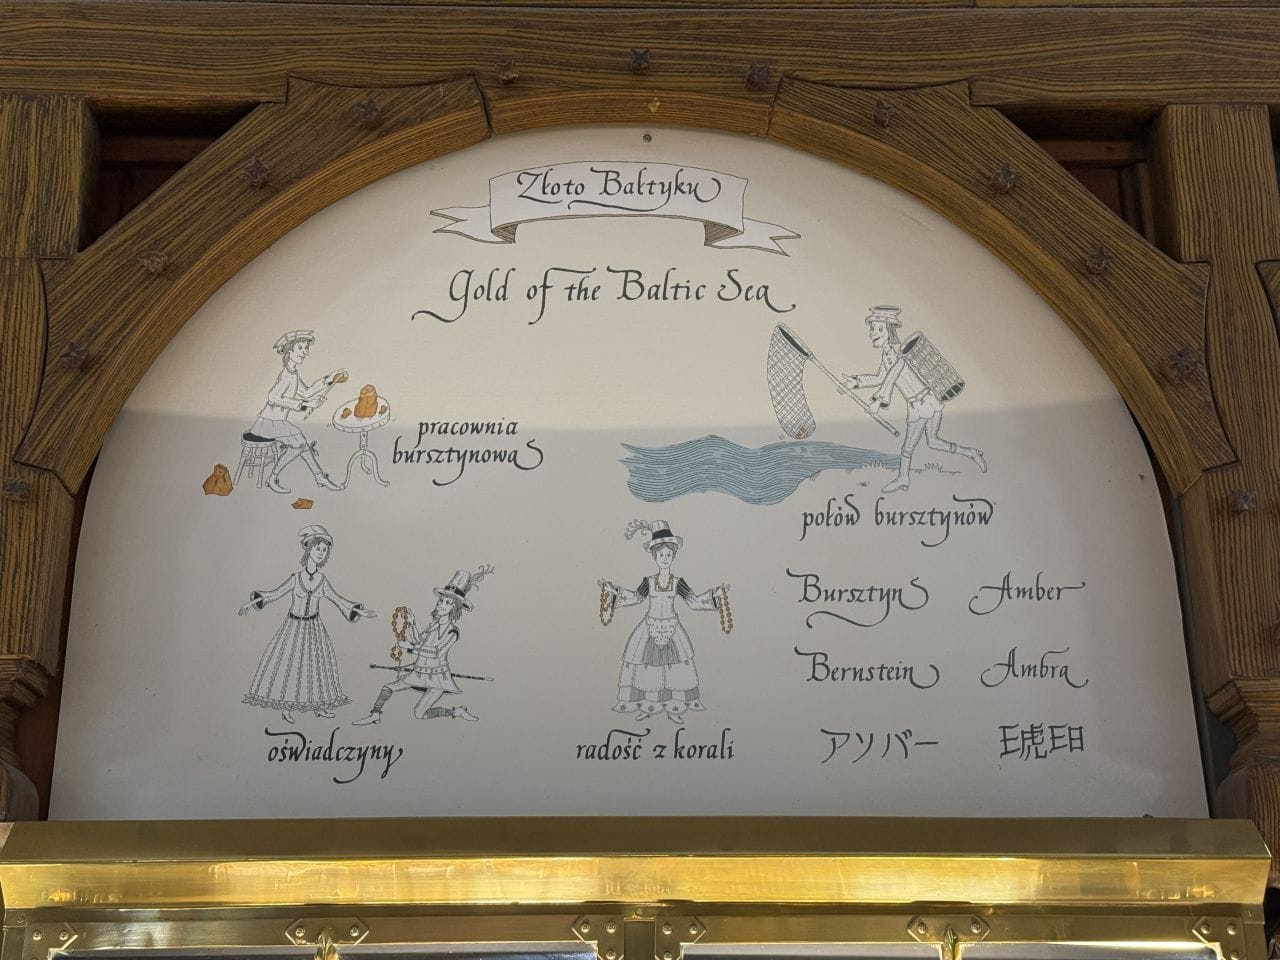 Złoto Bałtyku
Gold of the Baltic Sea
pracownia
bursztynowa
połów bursztynów
oświadczyny
radość z korali
Bursztyn Amber
Bernstein Ambra
アソバー